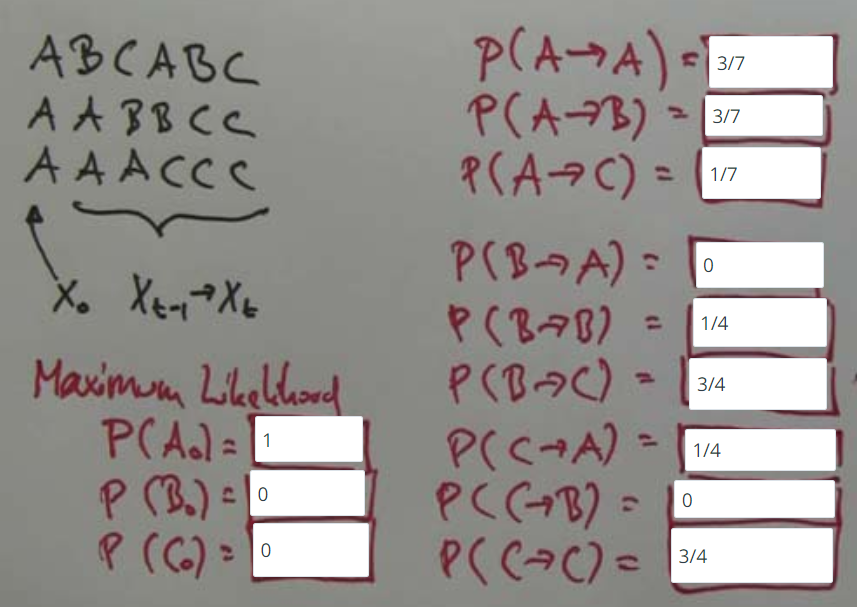 A B C A B C
A A B B C C
A A A C C C
X₀ Xₜ₋₁→Xₜ
Maximum Likelihood
P(A₀) = 1
P(B₀) = 0
P(C₀) = 0
P(A→A) = 3/7
P(A→B) = 3/7
P(A→C) = 1/7
P(B→A) = 0
P(B→B) = 1/4
P(B→C) = 3/4
P(C→A) = 1/4
P(C→B) = 0
P(C→C) = 3/4